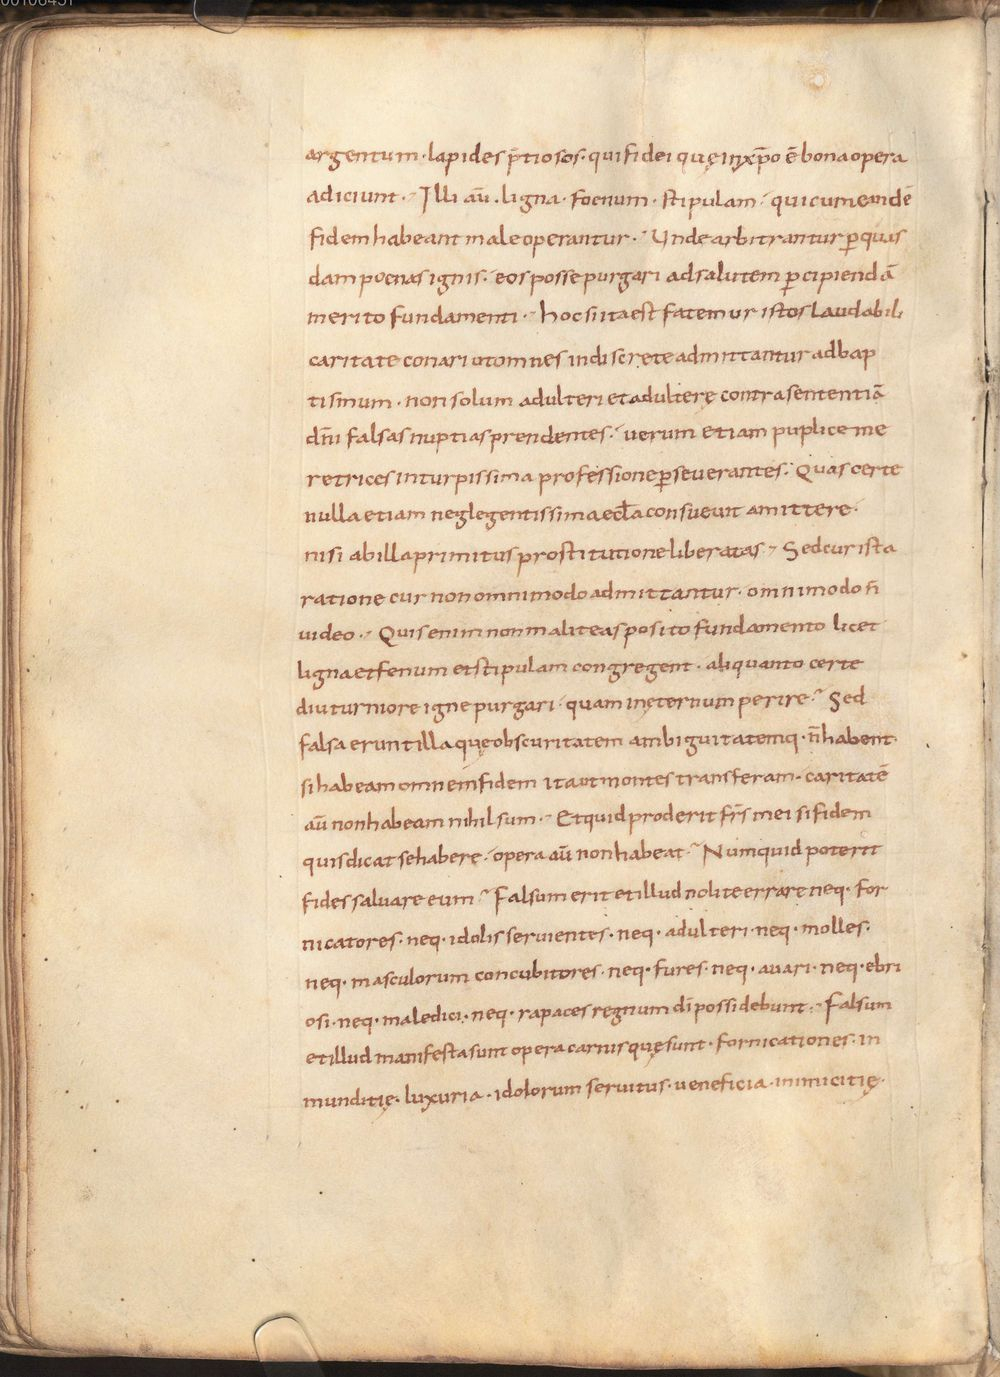 argentum · lapides p̄tiosos · qui fidei quę in xp̄o ē bona opera
adiciunt · Illi aū · ligna · foenum · stipulam · qui cum eandē
fidem habeant male operantur · Unde arbitrantur ꝑ quas
dam poenas ignis · eos posse purgari ad salutem ꝑcipiendā
merito fundamenti · hoc si ita est fatemur istos laudabili
caritate conari ut omnes indiscrete admittantur ad bap
tismum · non solum adulteri et adulterę contra sententiā
dn̄i falsas nuptias prendentes · uerum etiam puplice me
retrices in turpissima professione ꝑseuerantes · Quas certe
nulla etiam neglegentissima eccl̄a consueuit amittere ·
nisi ab illa primitus prostitutione liberatas · Sed cur ista
ratione cur non omnimodo admittantur · omnimodo n̄
uideo · Quis enim non malit eas posito fundamento licet
ligna et fenum et stipulam congregent · aliquanto certe
diuturniore igne purgari · quam in ęternum perire · Sed
falsa erunt illa quę obscuritatem ambiguitatemq · n̄ habent ·
si habeam omnem fidem ita ut montes transferam · caritatē
aū non habeam nihil sum · Et quid proderit fr̄s mei si fidem
quis dicat se habere · opera aū non habeat · Numquid poterit
fides saluare eum · Falsum erit et illud nolite errare neq · for
nicatores · neq · idolis seruientes · neq · adulteri · neq · molles ·
neq · masculorum concubitores · neq · fures · neq · auari · neq · ebri
osi · neq · maledici · neq · rapaces regnum dī possidebunt · Falsum
et illud manifesta sunt opera carnis quę sunt · fornicationes · in
munditię · luxuria · idolorum seruitus · ueneficia · inimicitię ·